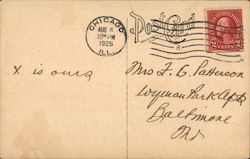 Post Card
CHICAGO
AUG 4
10 PM
1925
ILL.
x is ours
Mrs F. C. Patterson
Wyman Park Apts
Baltimore
Md.